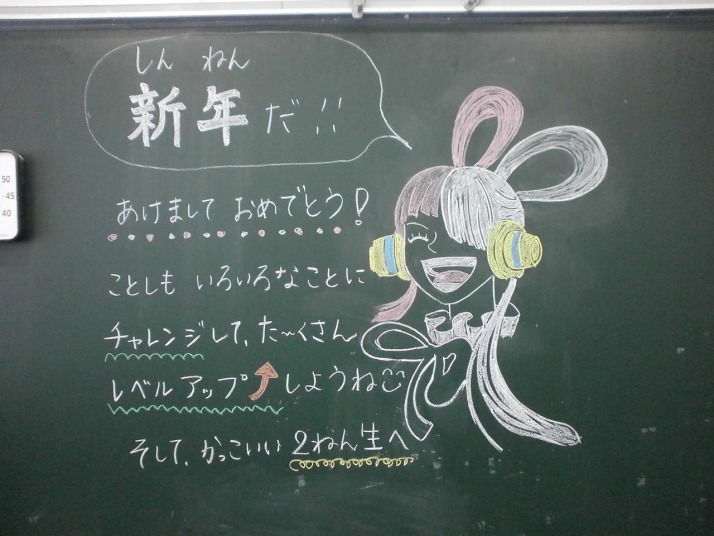 しん ねん
新年だ!!
あけまして おめでとう!
ことしも いろいろなことに
チャレンジして、た〜くさん
レベルアップしようね
そして、かっこいい 2ねん生へ
50
45
40